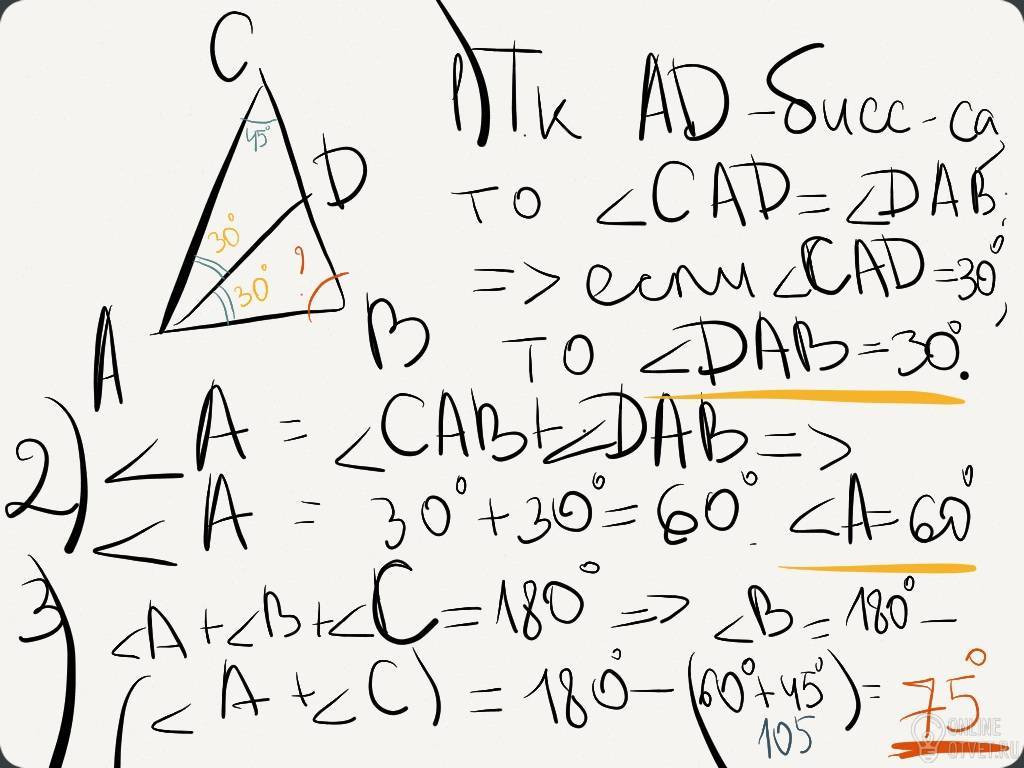 C
45°
D
30°
30°
?
A
B
1) Т.к AD - бисс-са,
то ∠CAD = ∠DAB;
=> если ∠CAD = 30°,
то ∠DAB = 30°.
2) ∠A = ∠CAB + ∠DAB =>
∠A = 30° + 30° = 60°. ∠A = 60°
3) ∠A + ∠B + ∠C = 180° => ∠B = 180° -
(∠A + ∠C) = 180° - (60° + 45°) = 75°
105
ONLINE
OTVET.RU